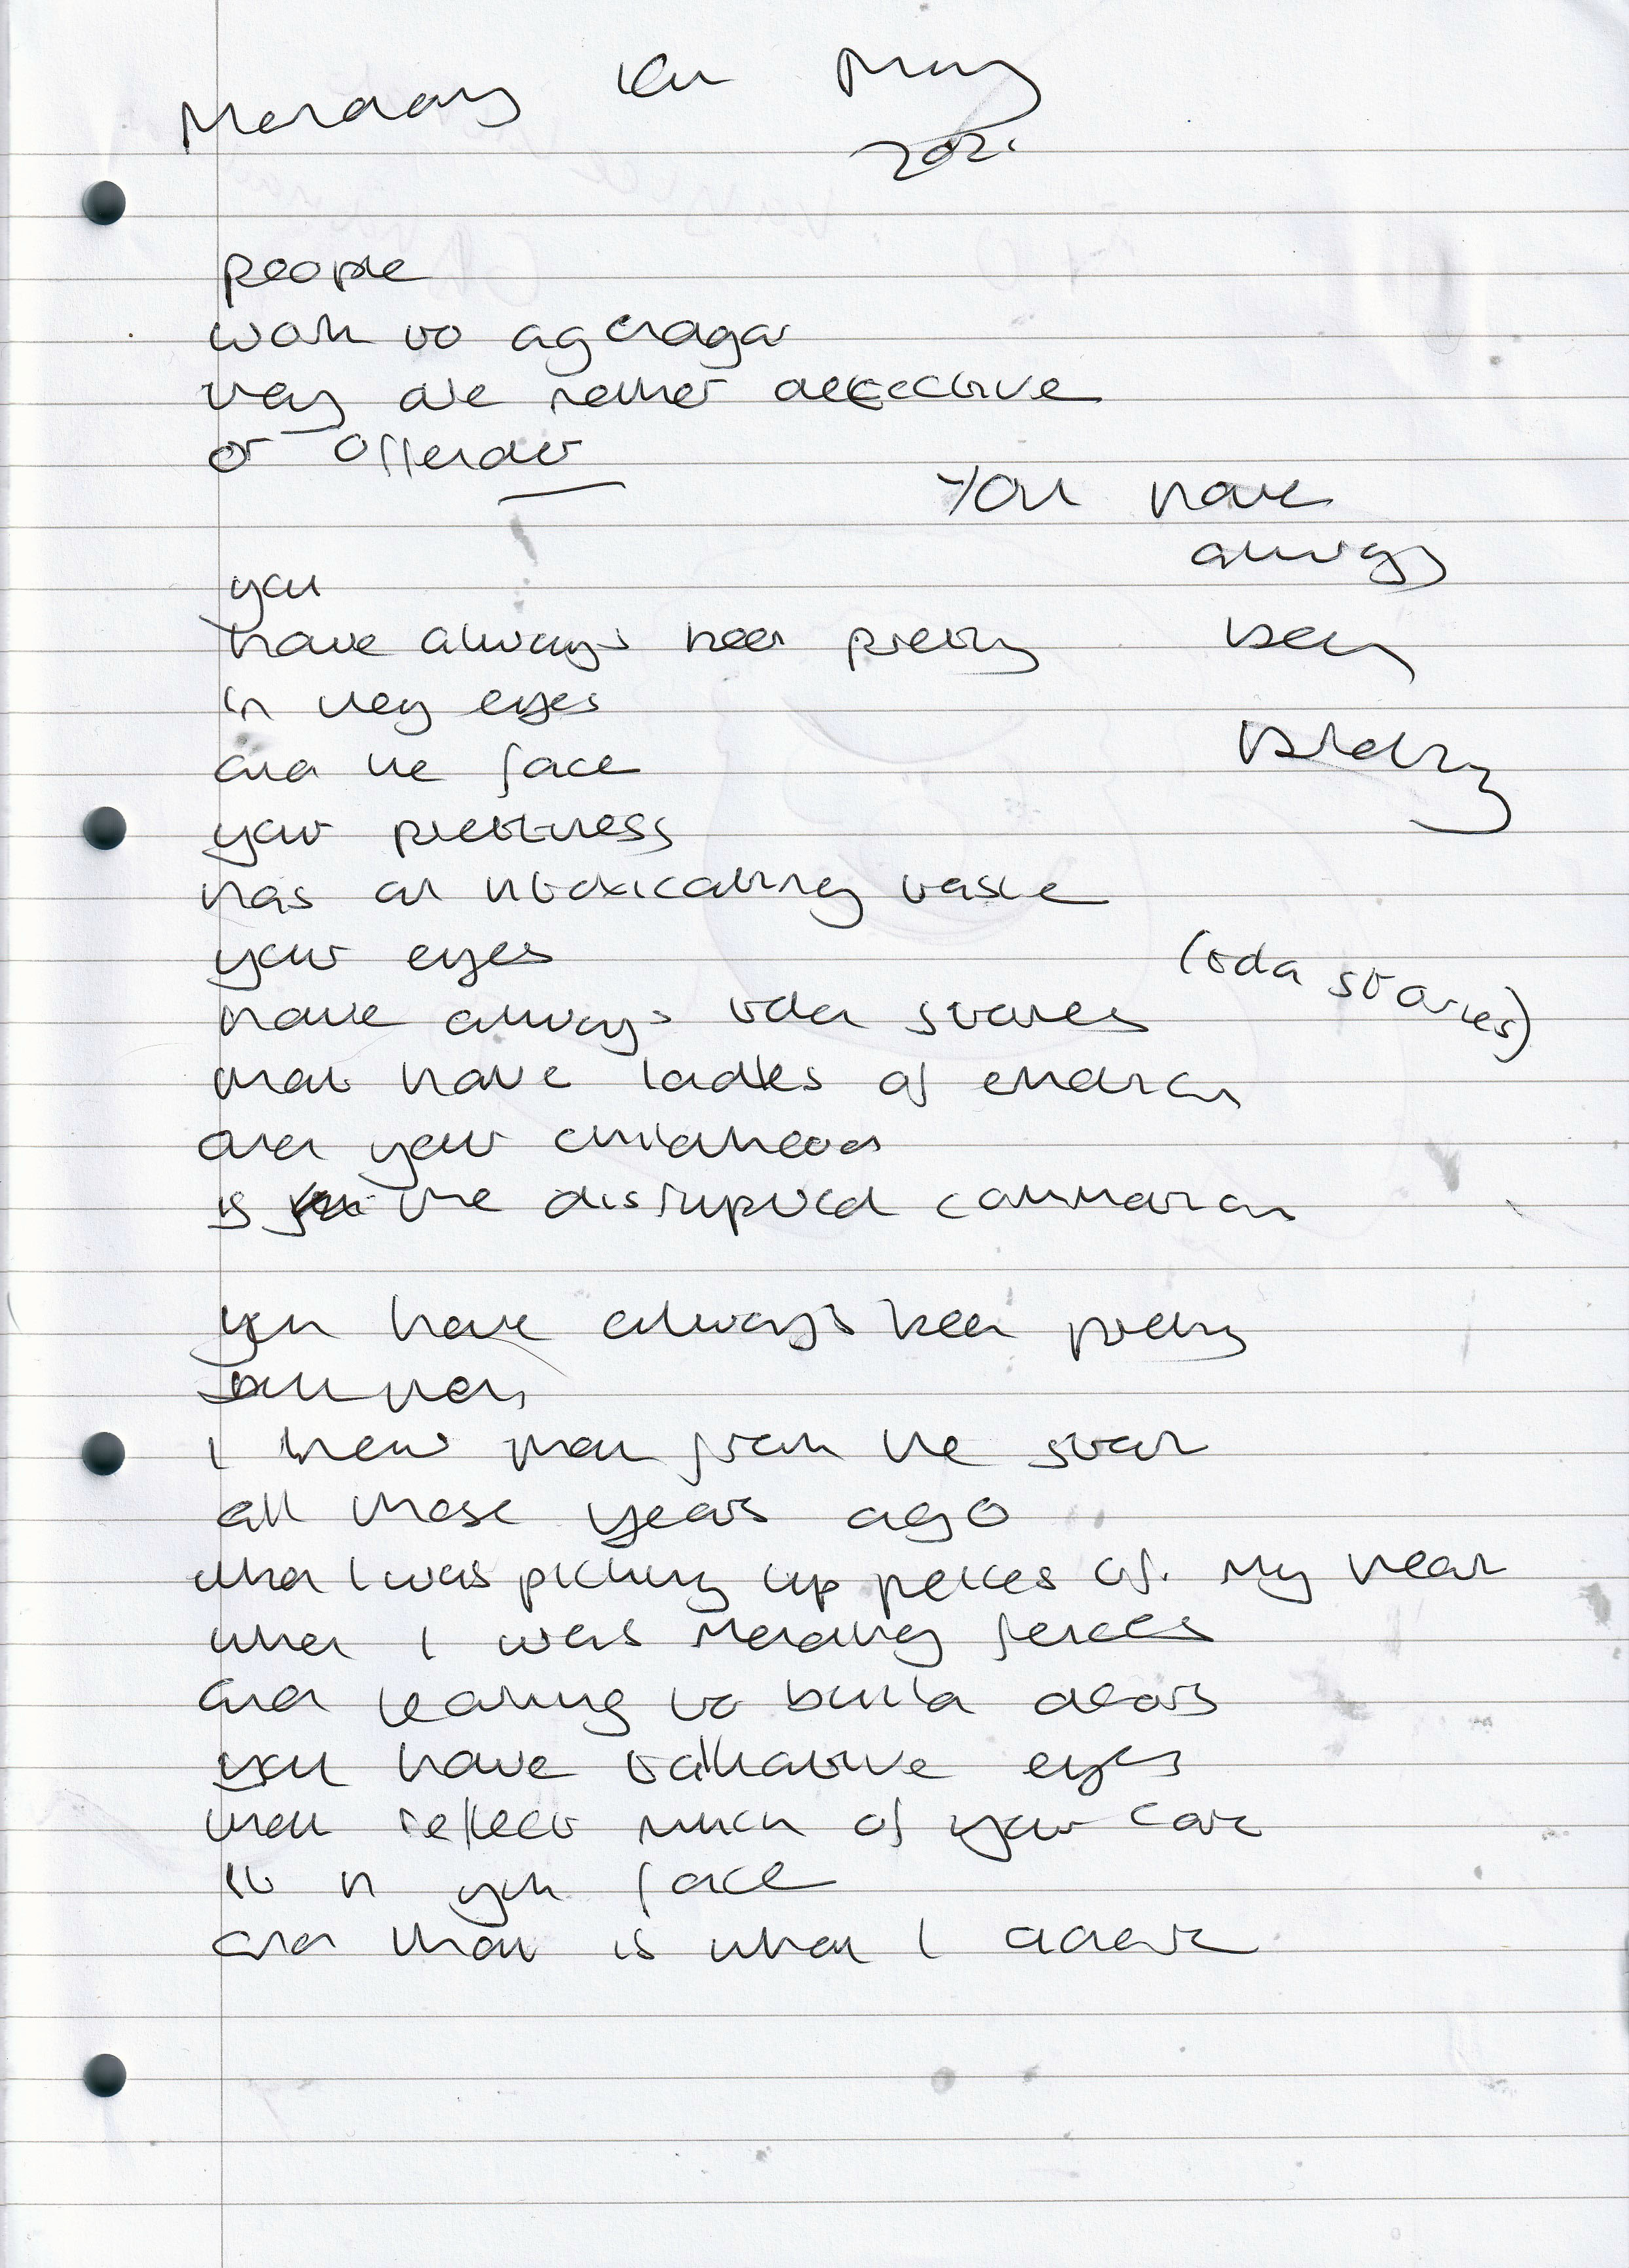 Monday May
people
work to
they are neither detective
or offender
You have
always
been
pretty
you
have always been pretty
in they eyes
and the face
your prettiness
has an intoxicating taste
your eyes
have always told stories
(told stories)
that have ladles of emotion
and your childhood
is the disrupted common
you have always been pretty
I knew that from the start
all those years ago
when I was picking up peices of my heart
when I was mending fences
and learning to build doors
you have talkative eyes
that reflect much of your core
it in your face
and that is what I adore